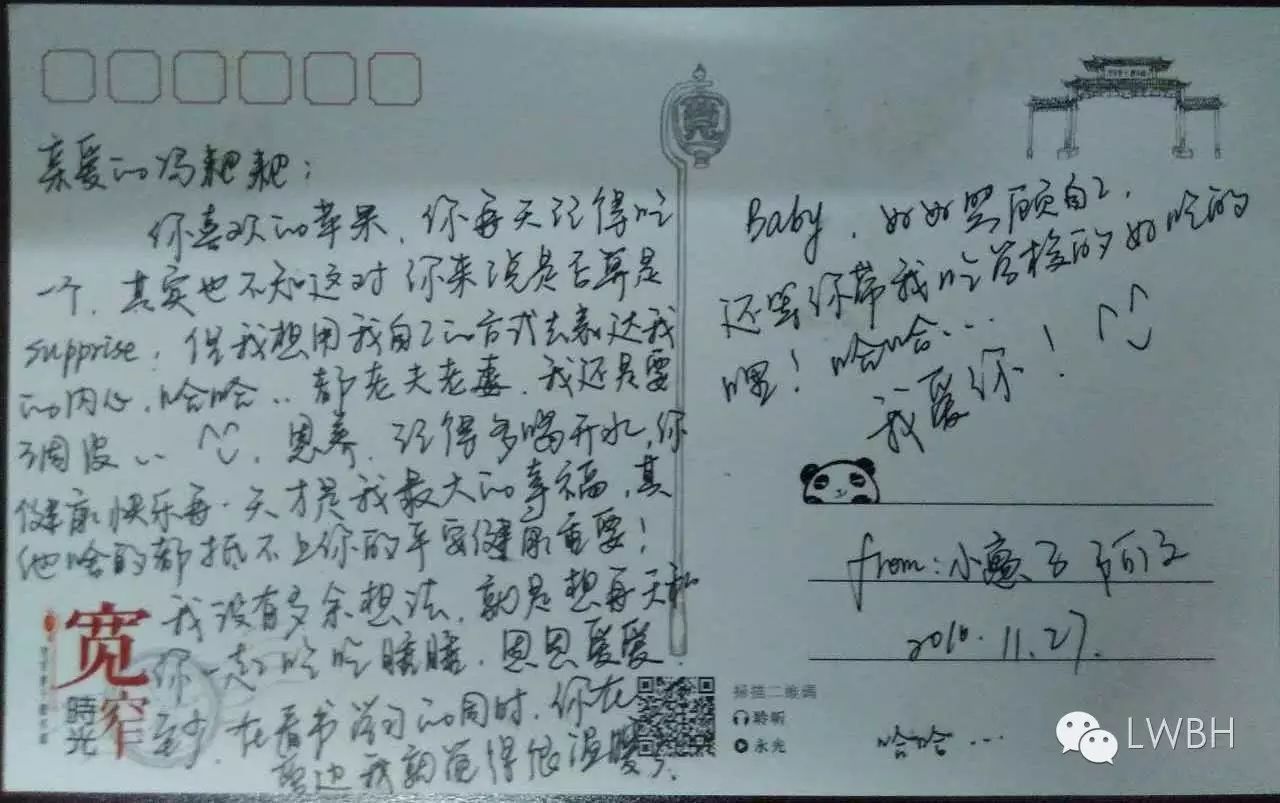 亲爱的冯耙耙：
你喜欢的苹果，你每天记得吃
一个，其实也不知这对你来说是否算是
supprise，但我想用我自己的方式去表达我
的内心，哈哈..都老夫老妻，我还是要
调皮..^^，恩，记得多喝开水，你
健康快乐每一天才是我最大的幸福，其
他啥的都抵不上你的平安健康重要！
我没有多余想法，就是想每天和
你一起吃吃睡睡，恩恩爱爱
在看书学习的同时，你在
旁边我就觉得很温暖了.
宽窄
時光
宽
Baby，好好照顾自己，
还等你带我吃学校的好吃的
嘿！哈哈...
我爱你！^^
from：小憨子
2016.11.27.
哈哈...
扫描二维码
聆听
永光
LWBH